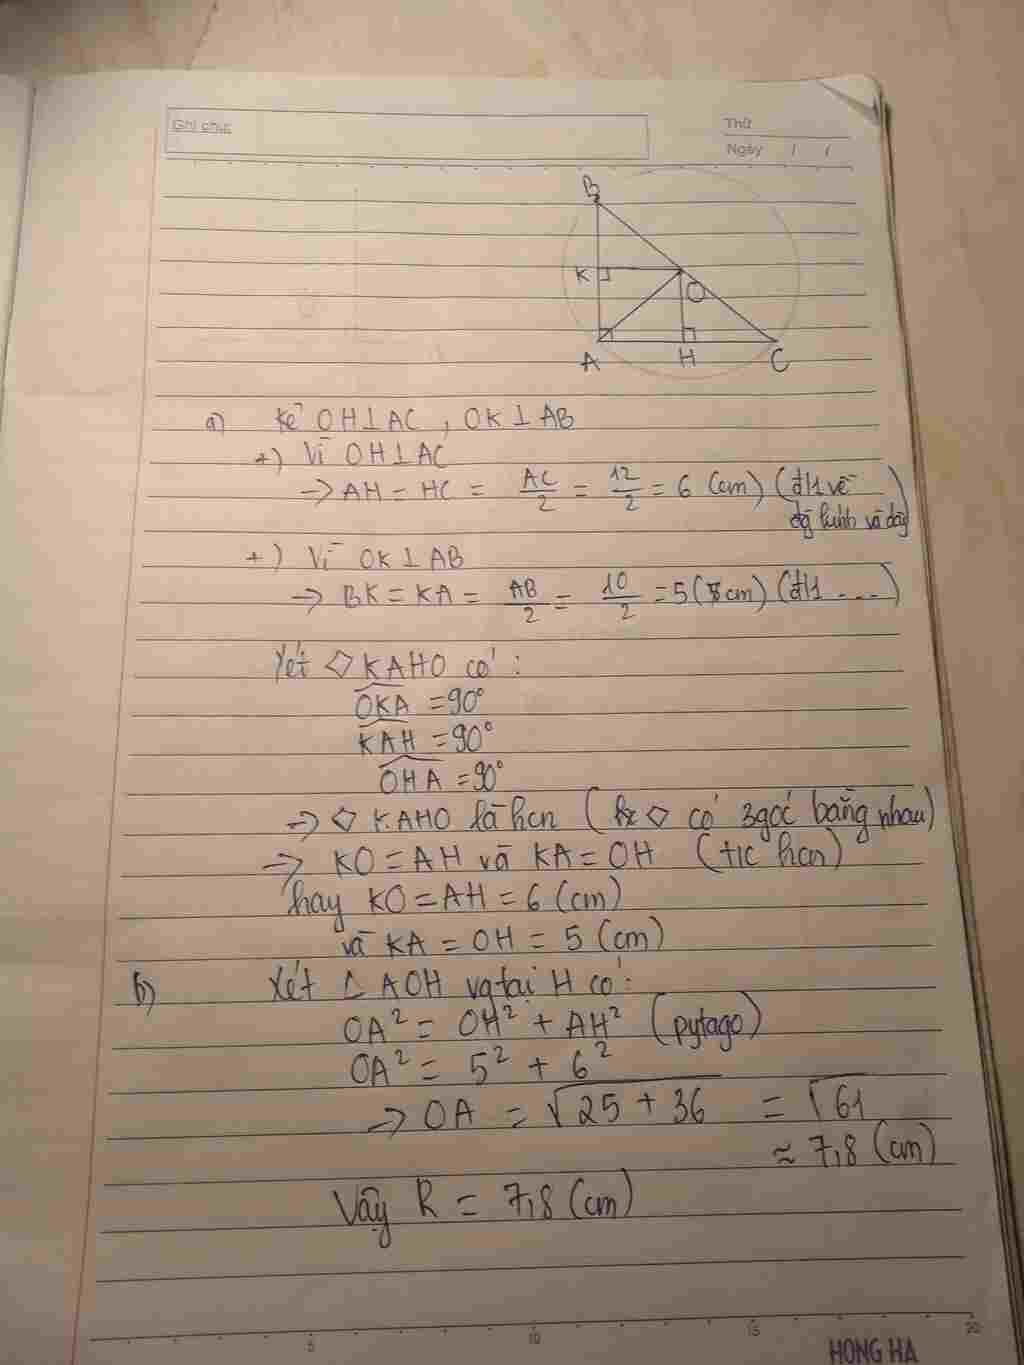 Ghi chú:
Thứ
Ngày / /
B
K
O
A H C
a) Kẻ OH⊥AC, OK⊥AB
+) Vì OH⊥AC
→ AH = HC = AC/2 = 12/2 = 6 (cm) (đl1 về
đg kính và dây)
+) Vì OK⊥AB
→ BK = KA = AB/2 = 10/2 = 5 (cm) (đl1 ---)
Xét ◇ KAHO có:
OKA = 90°
KAH = 90°
OHA = 90°
→ ◇ KAHO là hcn ( ◇ có 3 góc bằng nhau)
→ KO = AH và KA = OH (t/c hcn)
hay KO = AH = 6 (cm)
và KA = OH = 5 (cm)
b) Xét △ AOH vg tại H có:
OA² = OH² + AH² (pytago)
OA² = 5² + 6²
→ OA = √25 + 36 = √61
≈ 7,8 (cm)
Vậy R = 7,8 (cm)
5 10 15 20
HONG HA